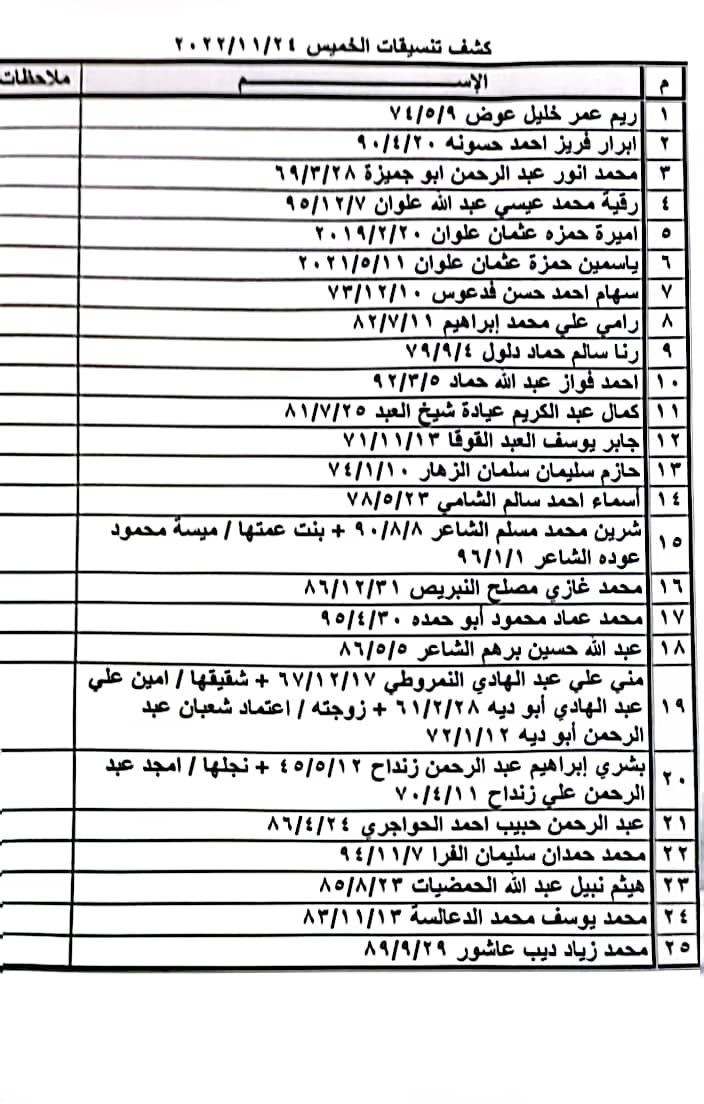 كشف تنسيقات الخميس ٢٠٢٢/١١/٢٤
م الإســـــــــم ملاحظات
١ ريم عمر خليل عوض ٧٤/٥/٩
٢ ابرار فريز احمد حسونه ٩٠/٤/٢٠
٣ محمد انور عبد الرحمن ابو جميزة ٦٩/٣/٢٨
٤ رقية محمد عيسي عبد الله علوان ٩٥/١٢/٧
٥ اميرة حمزه عثمان علوان ٢٠١٩/٢/٢٠
٦ ياسمين حمزة عثمان علوان ٢٠٢١/٥/١١
٧ سهام احمد حسن قدعوس ٧٣/١٢/١٠
٨ رامي علي محمد إبراهيم ٨٢/٧/١١
٩ رنا سالم حماد دلول ٧٩/٩/٤
١٠ احمد فواز عبد الله حماد ٩٢/٣/٥
١١ كمال عبد الكريم عيادة شيخ العبد ٨١/٧/٢٥
١٢ جابر يوسف العبد القوقا ٧١/١١/١٣
١٣ حازم سليمان سلمان الزهار ٧٤/١/١٠
١٤ أسماء احمد سالم الشامي ٧٨/٥/٢٣
١٥ شرين محمد مسلم الشاعر ٩٠/٨/٨ + بنت عمتها / ميسة محمود
عوده الشاعر ٩٦/١/١
١٦ محمد غازي مصلح النبريص ٨٦/١٢/٣١
١٧ محمد عماد محمود أبو حمده ٩٥/٤/٣٠
١٨ عبد الله حسين برهم الشاعر ٨٦/٥/٥
١٩ مني علي عبد الهادي النمروطي ٦٧/١٢/١٧ + شقيقها / امين علي
عبد الهادي أبو ديه ٦١/٢/٢٨ + زوجته / اعتماد شعبان عبد
الرحمن أبو ديه ٧٢/١/١٢
٢٠ بشري إبراهيم عبد الرحمن زنداح ٤٥/٥/١٢ + نجلها / امجد عبد
الرحمن علي زنداح ٧٠/٤/١١
٢١ عبد الرحمن حبيب احمد الحواجري ٨٦/٤/٢٤
٢٢ محمد حمدان سليمان الفرا ٩٤/١١/٧
٢٣ هيثم نبيل عبد الله الحمضيات ٨٥/٨/٢٣
٢٤ محمد يوسف محمد الدعالسة ٨٣/١١/١٣
٢٥ محمد زياد ديب عاشور ٨٩/٩/٢٩